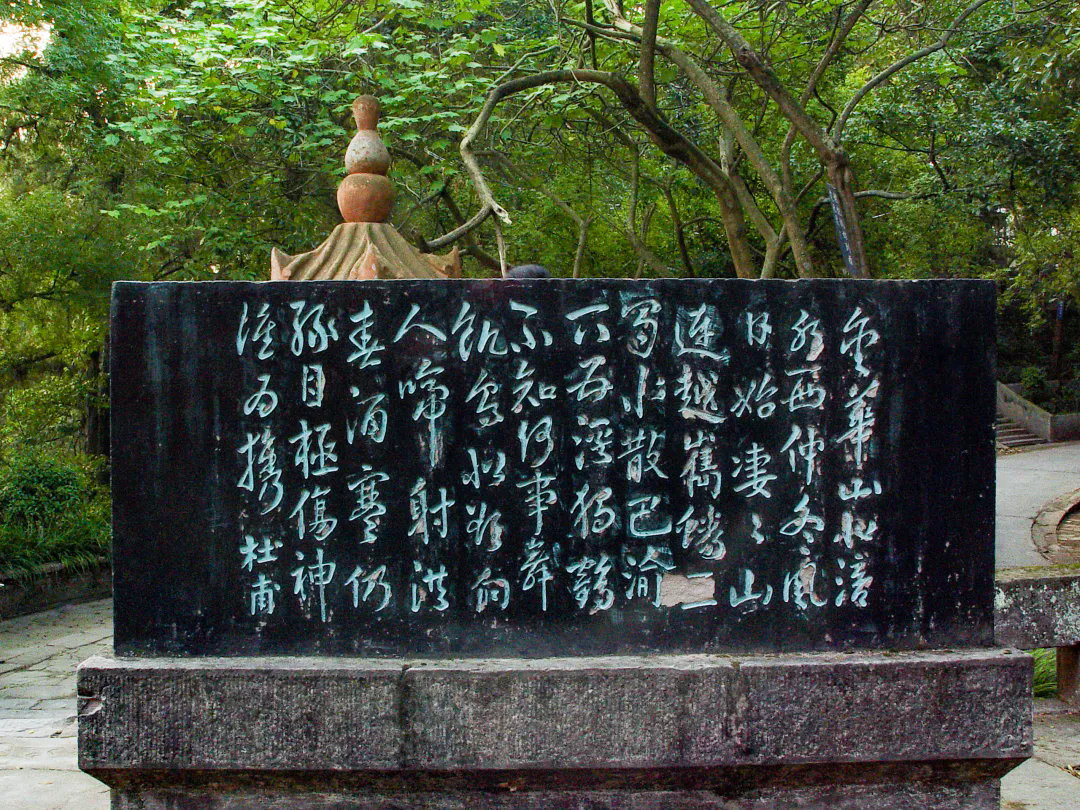 金華山北涪
水西仲冬風
日始凄〻山
連越嶲蟠三
蜀水散巴渝
下五溪獨鶴
不知何事舞
飢烏似欲向
人啼射洪
春酒寒仍
綠目極傷神
誰為攜 杜甫